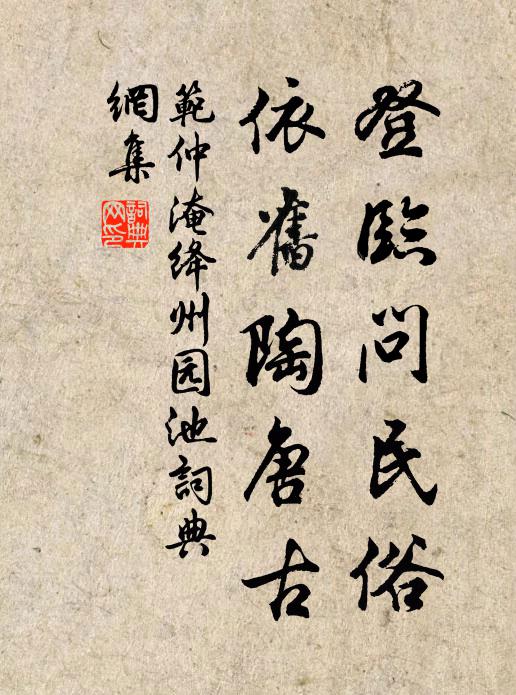 登臨問民俗
依舊陶唐古
範仲淹绛州园池詞典
網集
詞典
网印